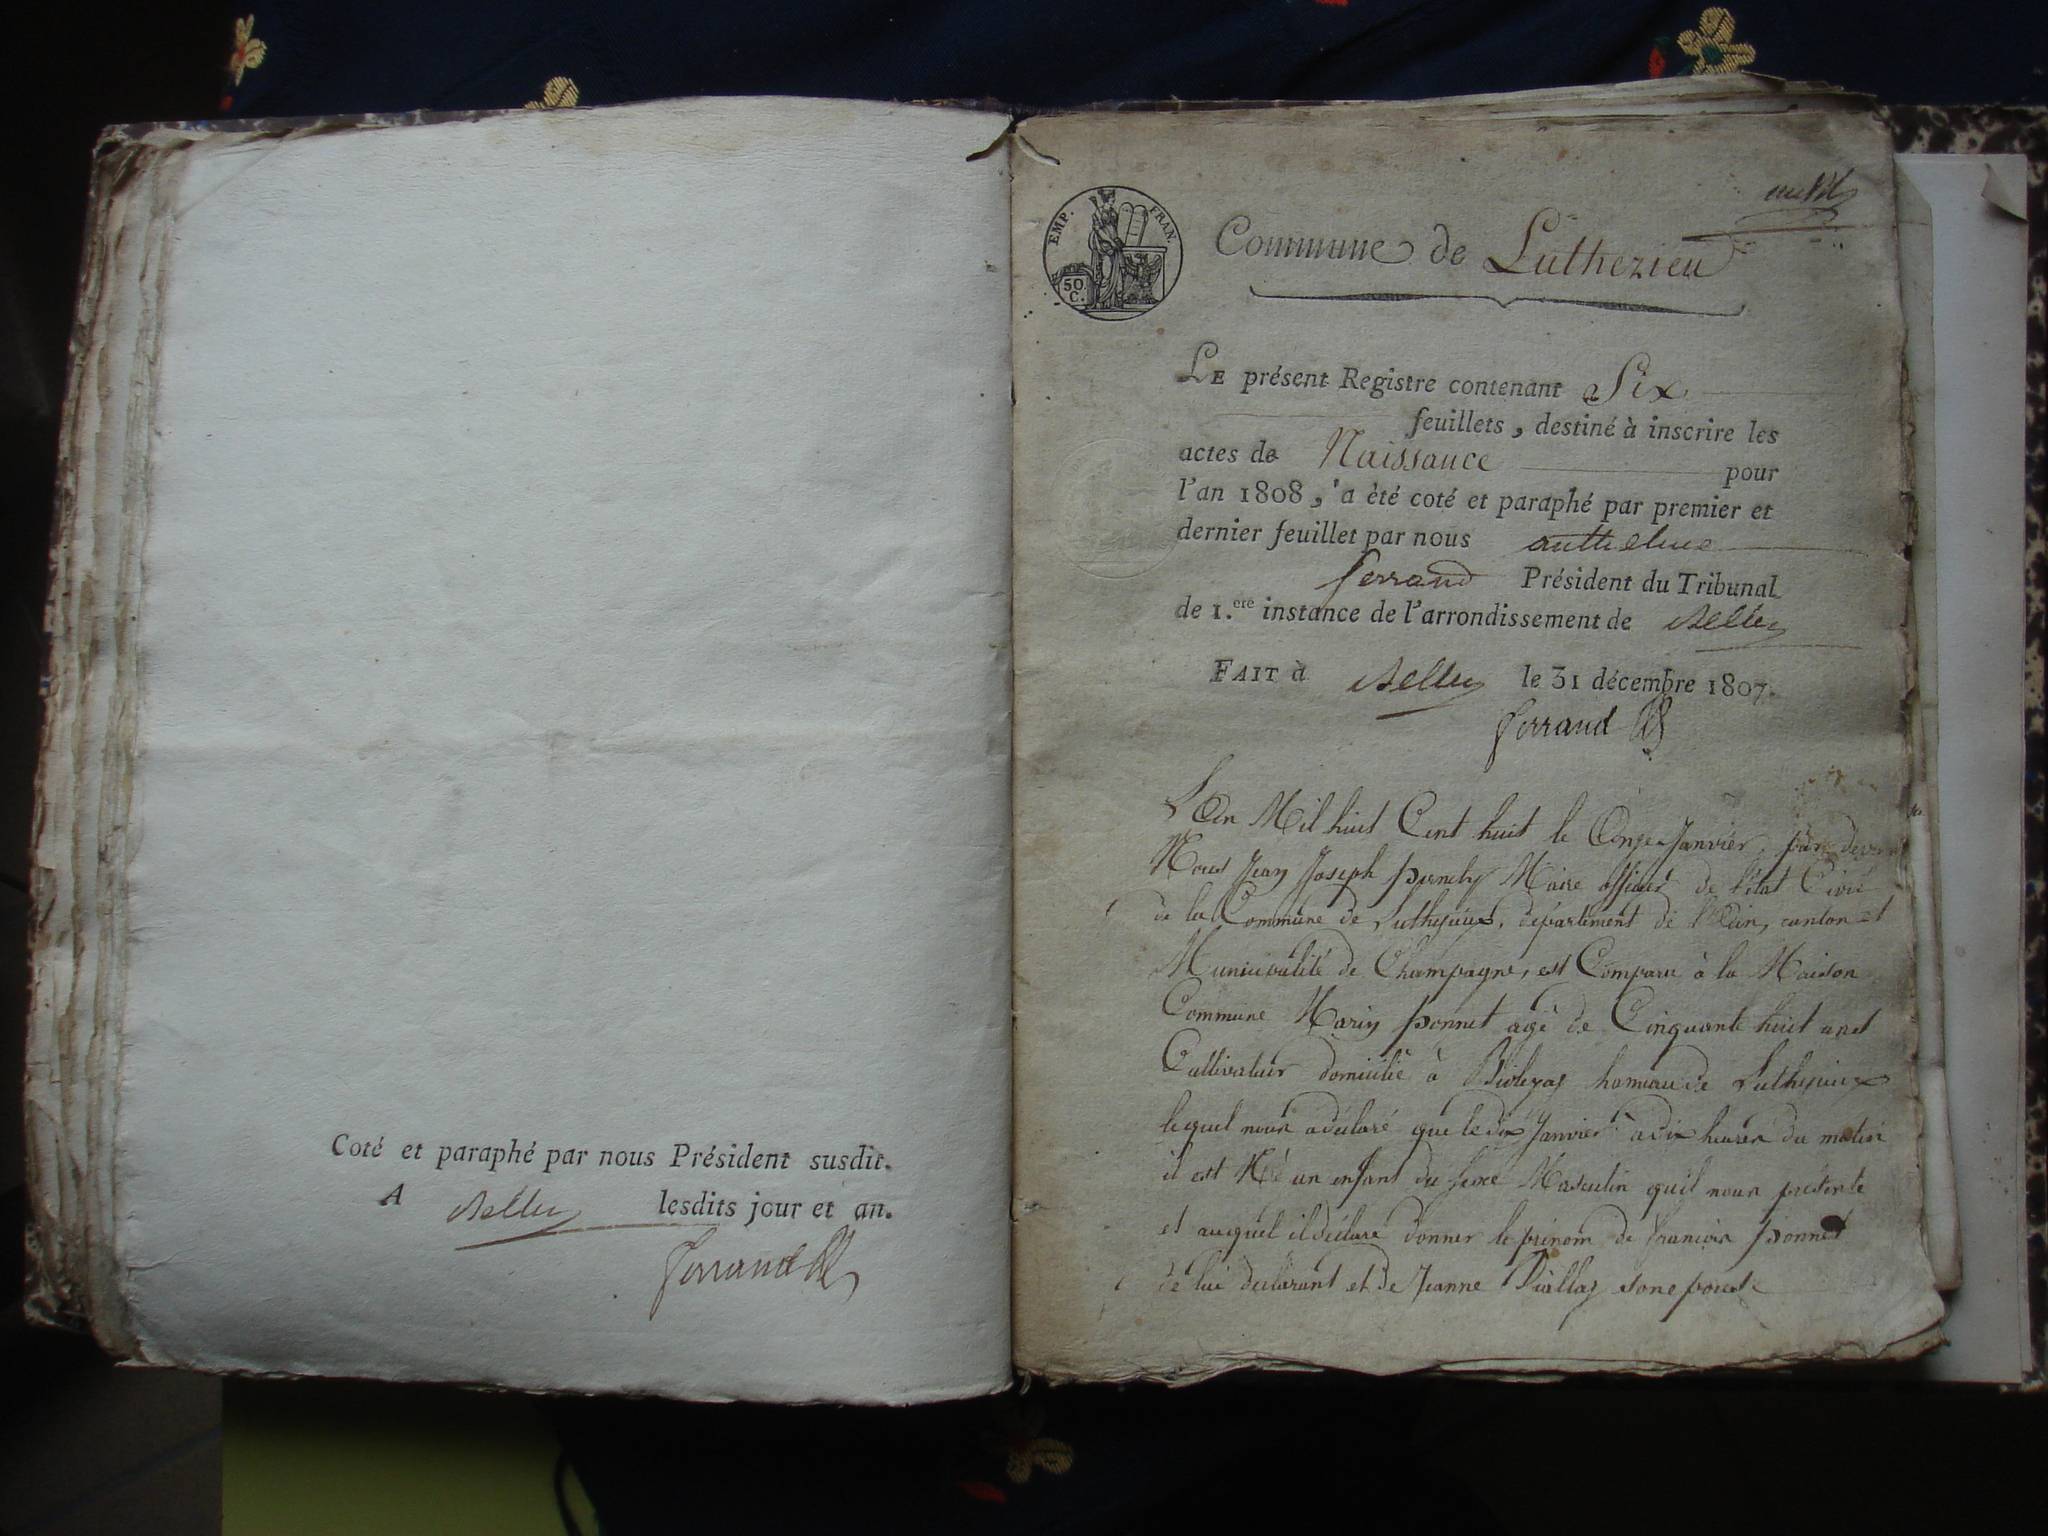 Coté et paraphé par nous Président susdit.
A Belley lesdits jour et an.
Ferrand
EMP. FRAN.
50
C.
Commune de Luthezieu
LE présent Registre contenant Six
feuillets, destiné à inscrire les
actes de Naissance pour
l'an 1808, a été coté et paraphé par premier et
dernier feuillet par nous anthelme
ferrand Président du Tribunal
de 1.ere instance de l'arrondissement de Belley
FAIT à Belley le 31 décembre 1807.
ferrand
L'an Mil huit Cent huit le Onze Janvier, par devant
Nous Jean Joseph Maire officier de l'état Civil
de la Commune de Luthezieux, département de l'Ain, canton et
Municipalité de Champagne, est Comparu à la Maison
Commune Marin ponnet agé de Cinquante huit ans
Cultivateur domicilié à hameau de Luthezieux
lequel nous a déclaré que le dix Janvier a dix heures du matin
il est Né un enfant du sexe Masculin qu'il nous presente
et auquel il déclare donner le prénom de françois ponnet
de lui déclarant et de Jeanne son epouse